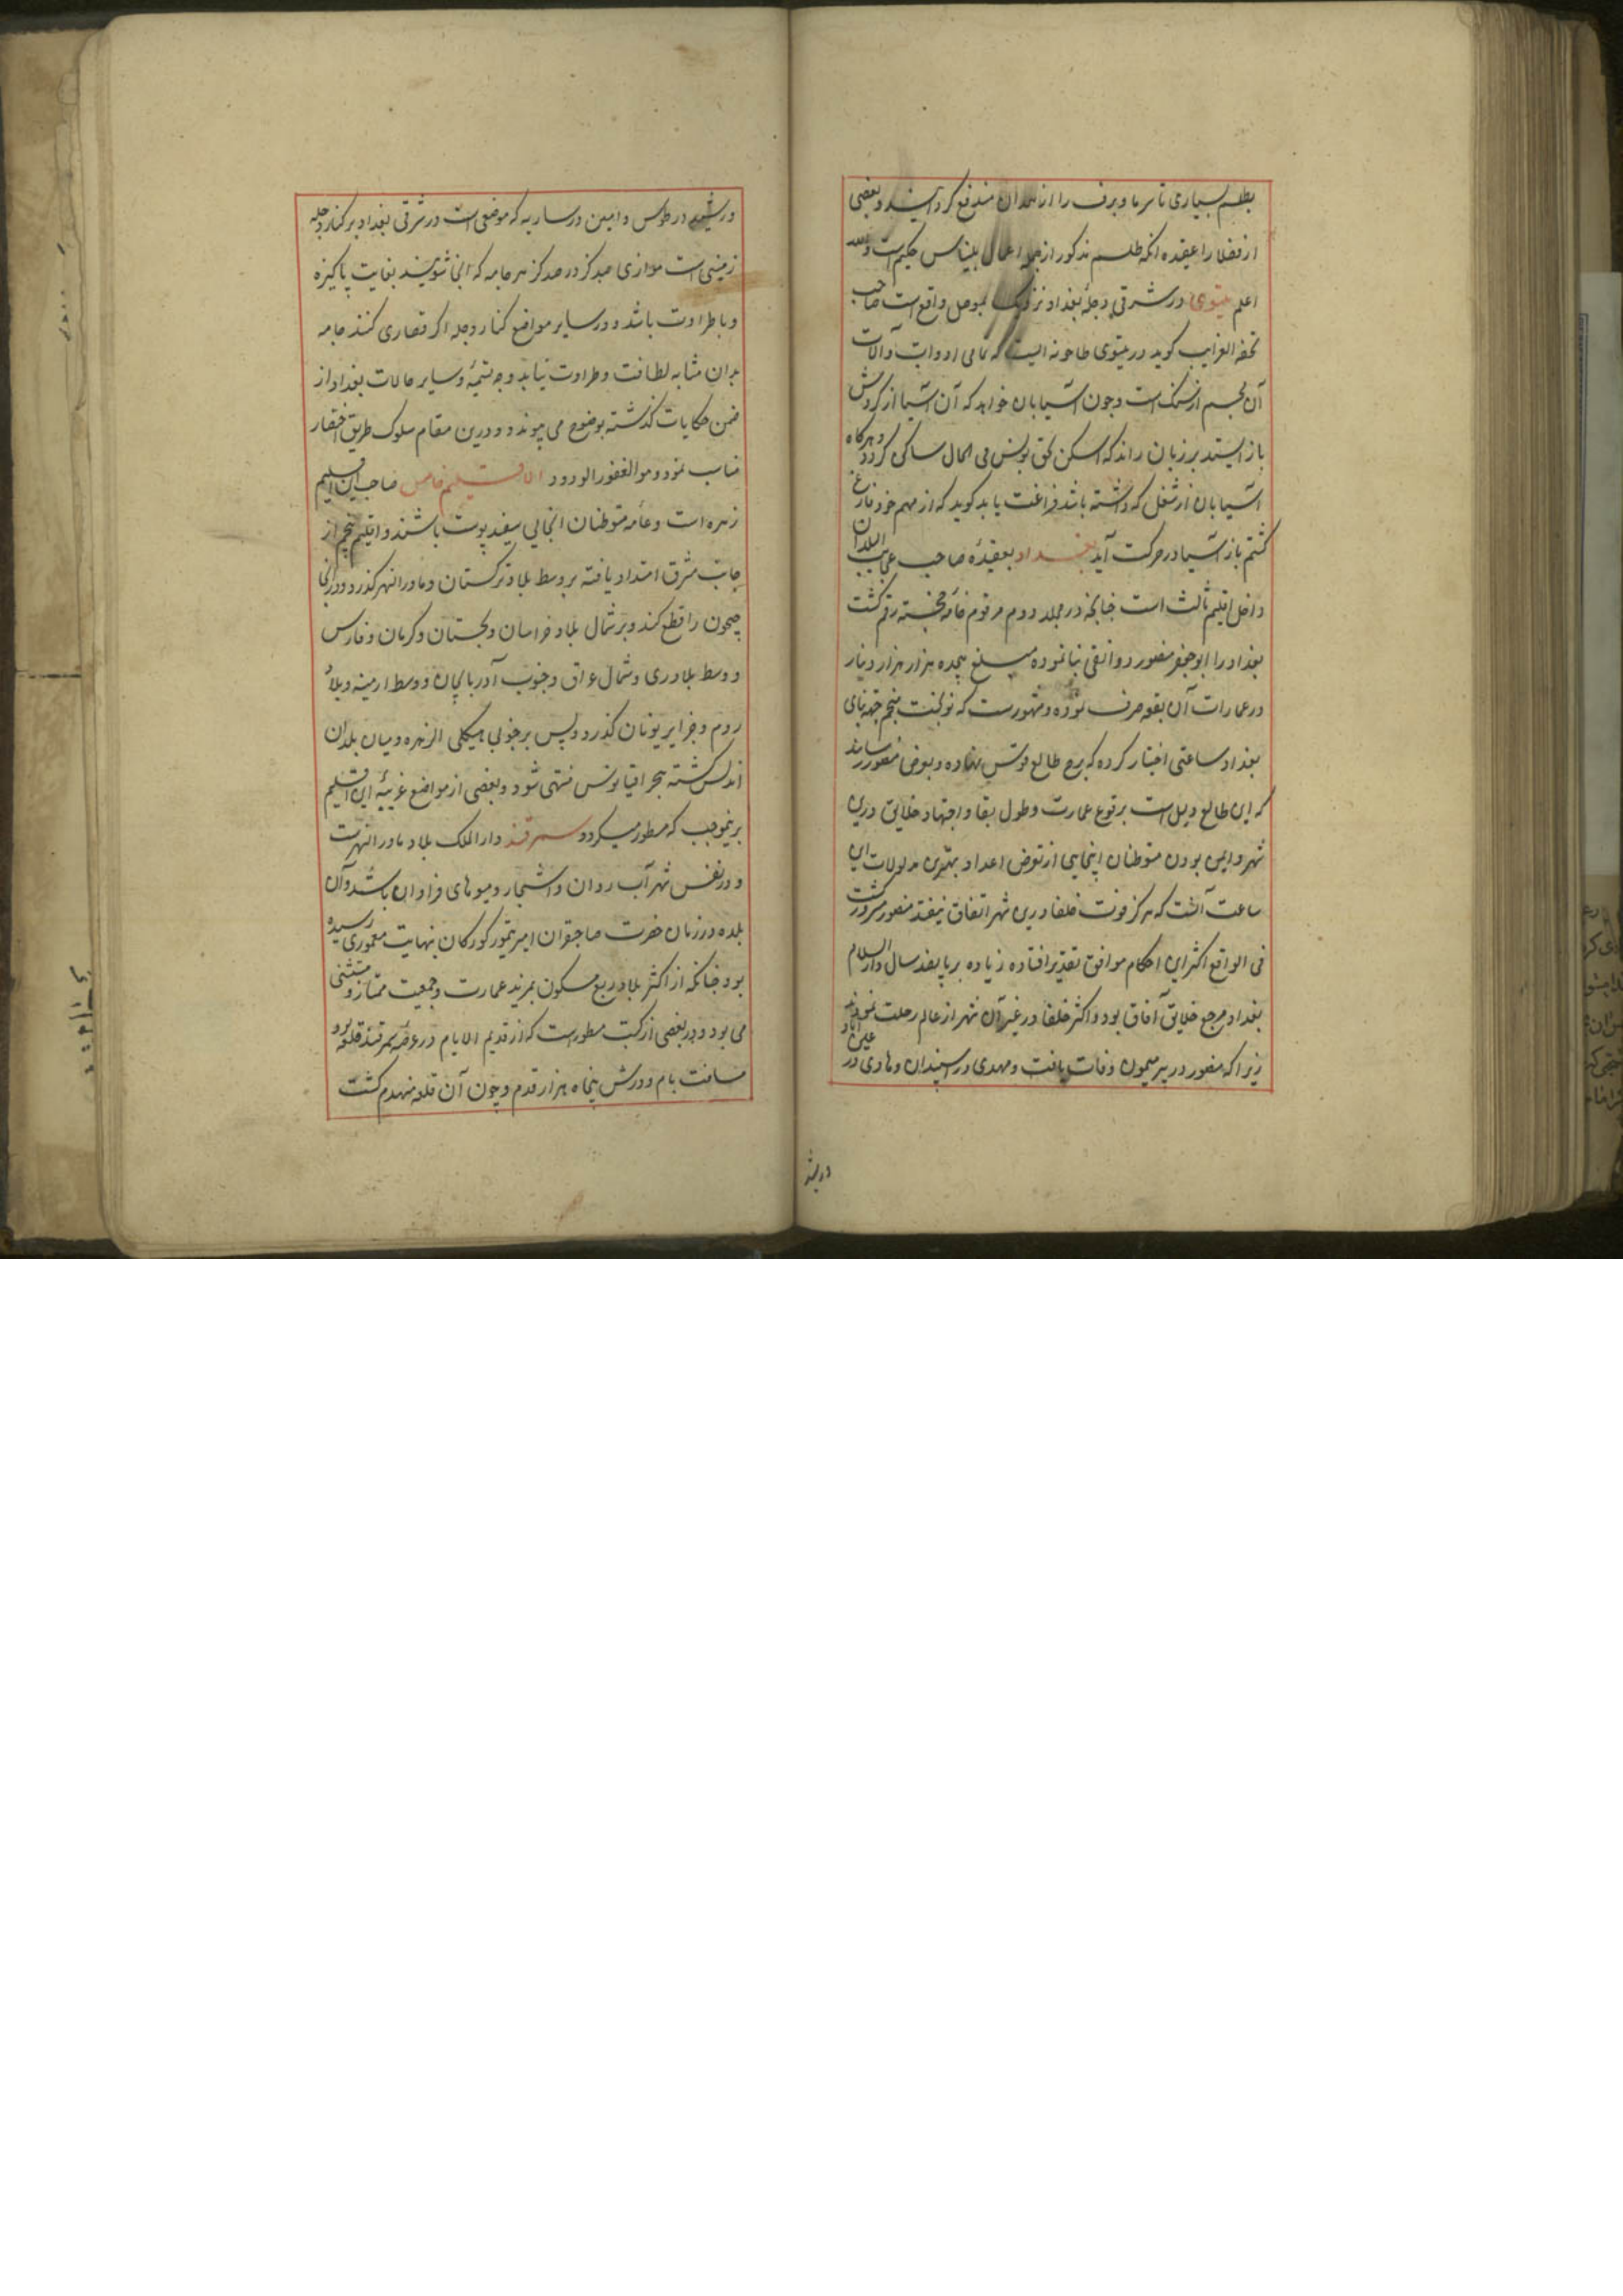 بطلسم بسیاری تاسرما و برف را از همدان مندفع کردانیند و بعضی
از فضلا را عقیده انکه طلسم مذکور از جمله اعمال بلیناس حکیم است والله
اعلم نینوی در شرقی دجلهٔ بغداد نزدیک بموصل واقع است صاحب
تحفه الغرایب کوید در نینوی طاحونه ایست که تمامی ادوات و آلات
آن بجسم از سنک است و چون آسیابان خواهد که آن آسیا از کردش
باز ایستد بر زبان راند که اسکن بحق یونس فی الحال ساکن کردد و هرکاه
آسیابان از شغلی که داشته باشد فراغت یابد کوید که از مهم خود فارغ
کشتم باز آسیا در حرکت آید بغداد بعقیدهٔ صاحب عجایب البلدان
داخل اقلیم ثالث است چنانچه در مجلد دوم مرقوم خامهٔ خجسته رقم کشت
بغداد را ابو جعفر منصور دوانقی بنا نموده مبلغ هجده هزار هزار دینار
در عمارات آن بقعه صرف نموده و مشهورست که نوبخت منجم جهة بنای
بغداد ساعتی اختیار کرده که برج طالع قوس نهاده و بعرض منصور رسانید
که این طالع دلیل است بر وقوع عمارت و طول بقا و اجتهاد خلایق درین
شهر و ایمن بودن متوطنان اینجایی از تعرض اعدا و بهترین مدلولات این
ساعت آنست که هرکز فوت خلفا درین شهر اتفاق نیفتد منصور مسرور کشت
فی الواقع اکثر این احکام موافق تقدیر افتاده زیاده بر پانصد سال دار السلام
بغداد مرجع خلایق آفاق بود و اکثر خلفا در غیر آن شهر از عالم رحلت نمودند
زیرا که منصور در بیر میمون وفات یافت و مهدی در ماسبندان و هادی در عیسی اباد
در رشید
و رشید در طوس و امین در ساریه که موضعی است در شرقی بغداد بر کنار دجله
زمینی است موازی صد کز در صد کز هر جامه که انجا شویند بغایت پاکیزه
و با طراوت باشد و در سایر مواضع کنار دجله اکر قصاری کنند جامه
بدان مثابه لطافت و طراوت نیابد وجه تسمیه و سایر حالات بغداد از
ضمن حکایات کذشته بوضوح می پیوندد و درین مقام سلوک طریق اختصار
مناسب نمود و هو الغفور الودود الاقلیم خامس صاحب این اقلیم
زهره است و عامه متوطنان انجایی سفید پوست باشند و اقلیم پنجم از
جانب مشرق امتداد یافته بر وسط بلاد ترکستان و ماورا النهر کذرد و در انجا
جیحون را قطع کند و بر شمال بلاد خراسان و سجستان و کرمان و فارس
و وسط بلاد ری و شمال عراق و جنوب آذربایجان و وسط ارمینه و بلاد
روم و جزایر یونان کذرد و پس بر جنوبی هیکلی الزهره و میان بلدان
اندلس کذشته ببحر اقیانوس منتهی شود و بعضی از مواضع غریبهٔ این اقلیم
برینموجب که مسطور میکردد سمرقند دار الملک بلاد ماورا النهرست
و در نفس شهر آب روان و اشجار و میوهای فراوان باشد و آن
بلده در زمان حضرت صاحبقران امیر تیمور کورکان بنهایت معموری رسیده
بود چنانکه از اکثر بلاد ربع مسکون بمزید عمارت و جمعیت ممتاز و مستثنی
می بود و در بعضی از کتب مسطورست که از قدیم الایام در عرصهٔ سمرقند قلعه بود
مسافت بام و درش پنجاه هزار قدم و چون آن قلعه منهدم کشت